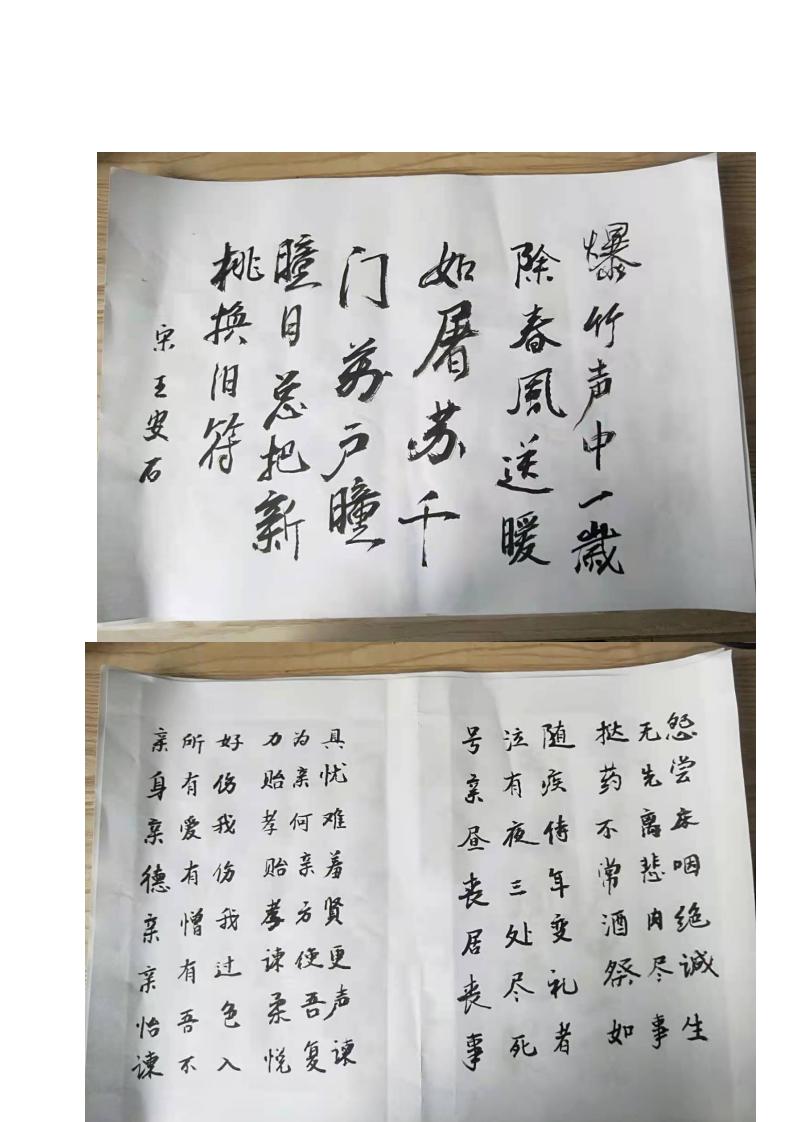 爆竹声中一歲
除春風送暖
如屠苏千
门萬户瞳
瞳日总把新
桃换旧符
宋王安石
怨尝床咽绝诚生
无先离悲肉尽事
挞药不常酒祭如
随疾侍年变礼者
泣有夜三处尽死
号亲昼丧居丧事
具忧难羞贤更声谏
为亲何亲方使吾复
力贻孝贻孝谏柔悦
好伤我伤我过色入
所有爱有憎有吾不
亲身亲德亲亲怡谏